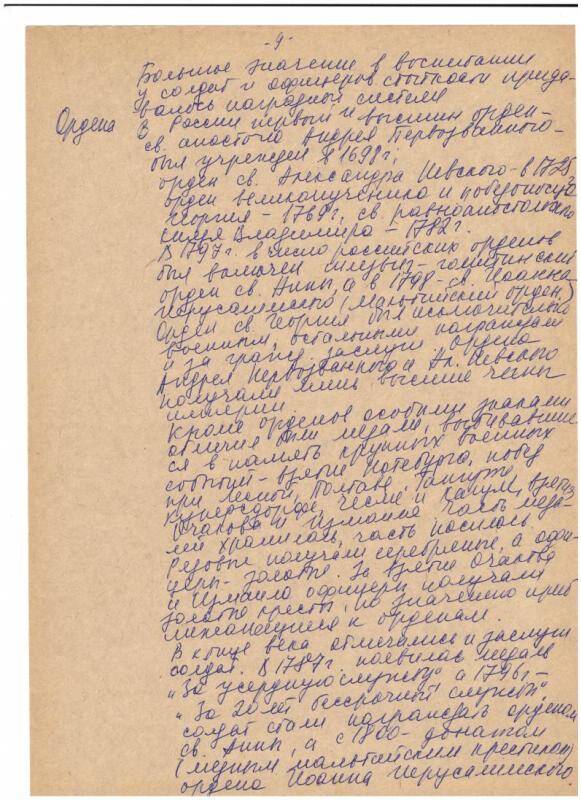 -9-
Большое значение в воспитании
у солдат и офицеров стойкости прида-
валось наградной системе
Ордена В России первый и высший орден -
св. апостола Андрея Первозванного -
был учрежден в 1698 г.,
орден св. Александра Невского - в 1725,
орден великомученика и победоносца
Георгия - 1769 г., св. равноапостольного
князя Владимира - 1782 г.
В 1797 г. в число российских орденов
был включен шлезвиг-голштинский
орден св. Анны, а в 1798 - св. Иоанна
Иерусалимского (Мальтийский орден)
Орден св. Георгия был исключительно
военным, остальными награждали
и за гражд. заслуги ордена
Андрея Первозванного и Ал. Невского
получали лишь высшие чины
империи.
Кроме орденов особыми знаками
отличия были медали, выбивавшие
ся в память крупных военных
событий - взятие Нотебурга, побед
при Лесной, Полтаве, Гангуте,
Кунерсдорфе, Чесме и Кагуле, взятия
Очакова и Измаила часть меда-
лей хранилась, часть носилась.
Рядовые получали серебряные, а офи-
церы - золотые. За взятие Очакова
и Измаила офицеры получали
золотые кресты, по значению приб
лижающиеся к орденам.
В конце века отмечались и заслуги
солдат. В 1787 г. появилась медаль
"За усердную службу", а 1796 г -
"За 20 лет беспорочной службы",
солдат стали награждать орденом
св. Анны, а с 1800 - донатом
(медным мальтийским крестиком)
ордена Иоанна Иерусалимского